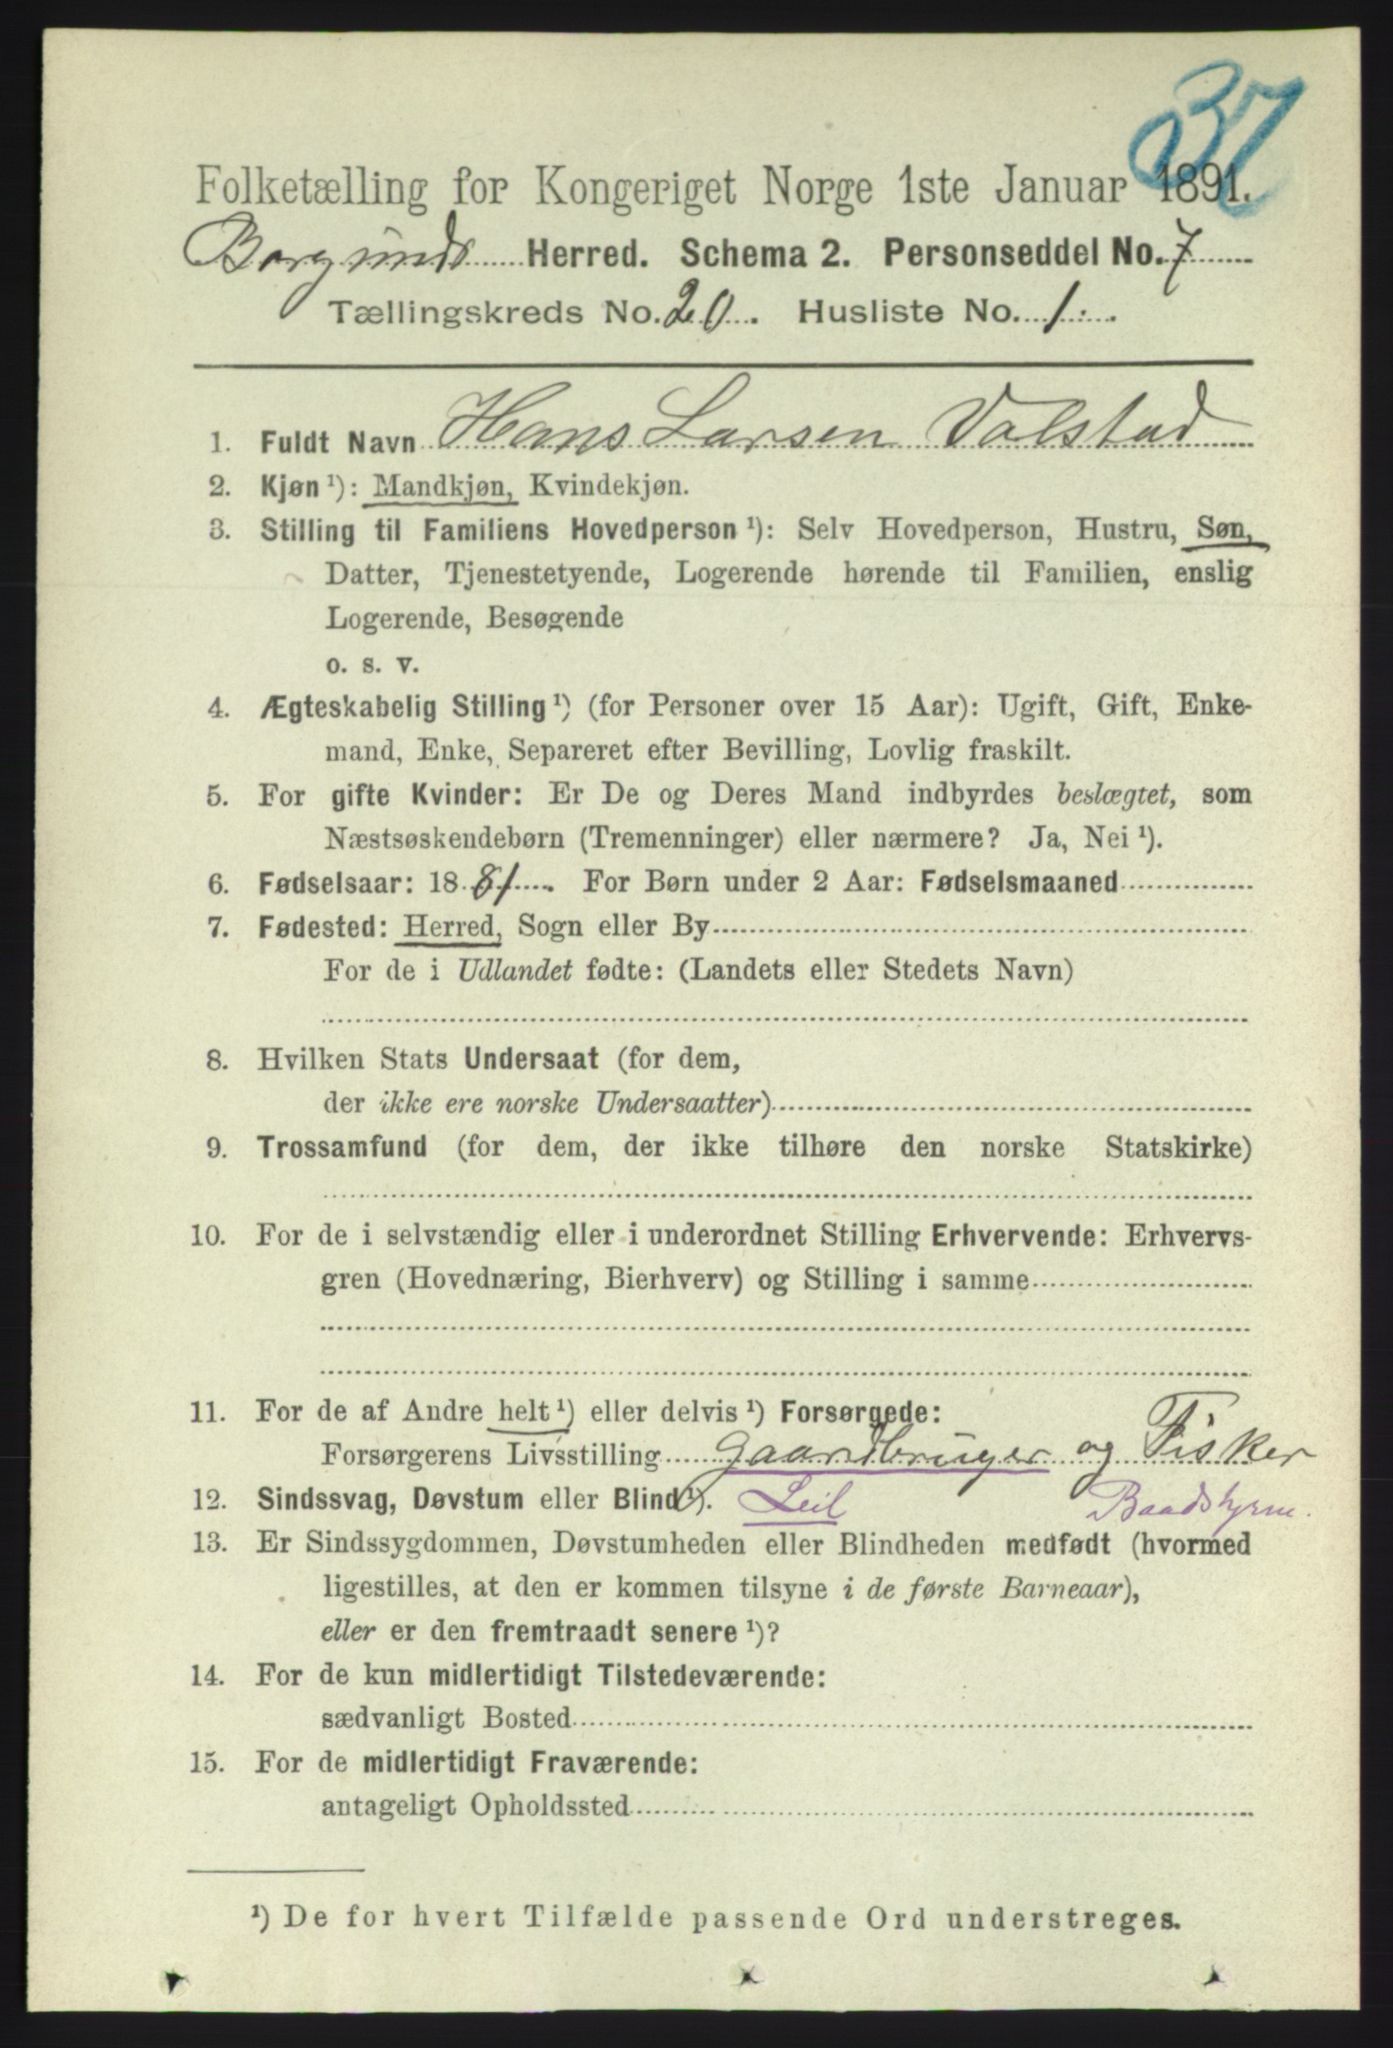 37
Folketælling for Kongeriget Norge 1ste Januar 1891.
Borgunds Herred. Schema 2. Personseddel No. 7
Tællingskreds No. 20. Husliste No. 1.
1. Fuldt Navn Hans Larsen Valstad
2. Kjøn ¹): Mandkjøn, Kvindekjøn.
3. Stilling til Familiens Hovedperson ¹): Selv Hovedperson, Hustru, Søn,
Datter, Tjenestetyende, Logerende hørende til Familien, enslig
Logerende, Besøgende
o. s. v.
4. Ægteskabelig Stilling ¹) (for Personer over 15 Aar): Ugift, Gift, Enke-
mand, Enke, Separeret efter Bevilling, Lovlig fraskilt.
5. For gifte Kvinder: Er De og Deres Mand indbyrdes beslægtet, som
Næstsøskendebørn (Tremenninger) eller nærmere? Ja, Nei ¹).
6. Fødselsaar: 1881. For Børn under 2 Aar: Fødselsmaaned
7. Fødested: Herred, Sogn eller By
For de i Udlandet fødte: (Landets eller Stedets Navn)
8. Hvilken Stats Undersaat (for dem,
der ikke ere norske Undersaatter)
9. Trossamfund (for dem, der ikke tilhøre den norske Statskirke)
10. For de i selvstændig eller i underordnet Stilling Erhvervende: Erhvervs-
gren (Hovednæring, Bierhverv) og Stilling i samme
11. For de af Andre helt ¹) eller delvis ¹) Forsørgede:
Forsørgerens Livsstilling gaardbruger og Fisker
12. Sindssvag, Døvstum eller Blind ¹). Leil Baadstyrer.
13. Er Sindssygdommen, Døvstumheden eller Blindheden medfødt (hvormed
ligestilles, at den er kommen tilsyne i de første Barneaar),
eller er den fremtraadt senere ¹)?
14. For de kun midlertidigt Tilstedeværende:
sædvanligt Bosted
15. For de midlertidigt Fraværende:
antageligt Opholdssted
¹) De for hvert Tilfælde passende Ord understreges.